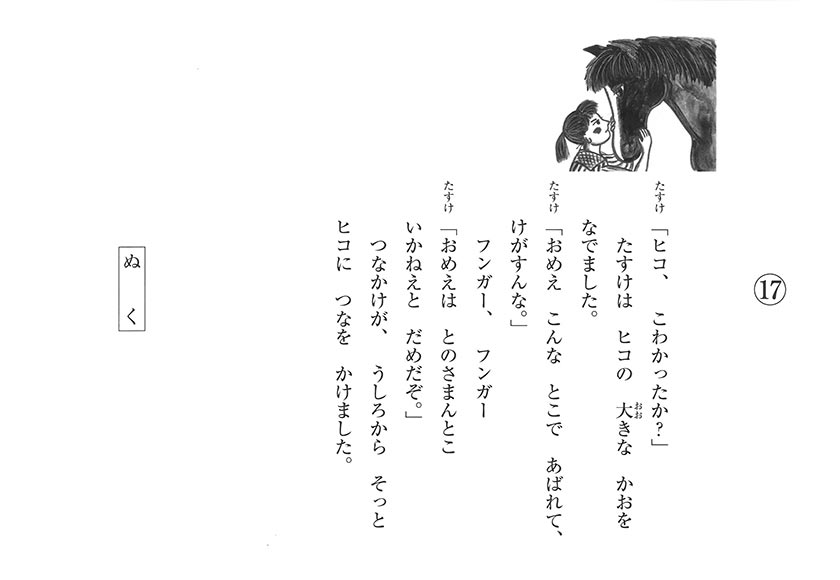 ⑰
たすけ「ヒコ、　こわかったか？」
たすけは　ヒコの　大きな　かおを
おお
なでました。
たすけ「おめえ　こんな　とこで　あばれて、
けがすんな。」
フンガー、　フンガー
たすけ「おめえは　とのさまんとこ
いかねえと　だめだぞ。」
つなかけが、　うしろから　そっと
ヒコに　つなを　かけました。
ぬく